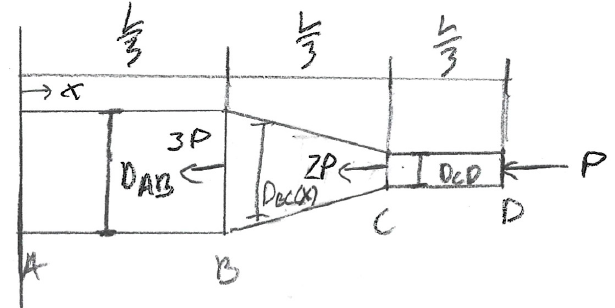 L/3 L/3 L/3
x
3P
D_AB
D_BC(x)
2P
D_CD
P
A B C D